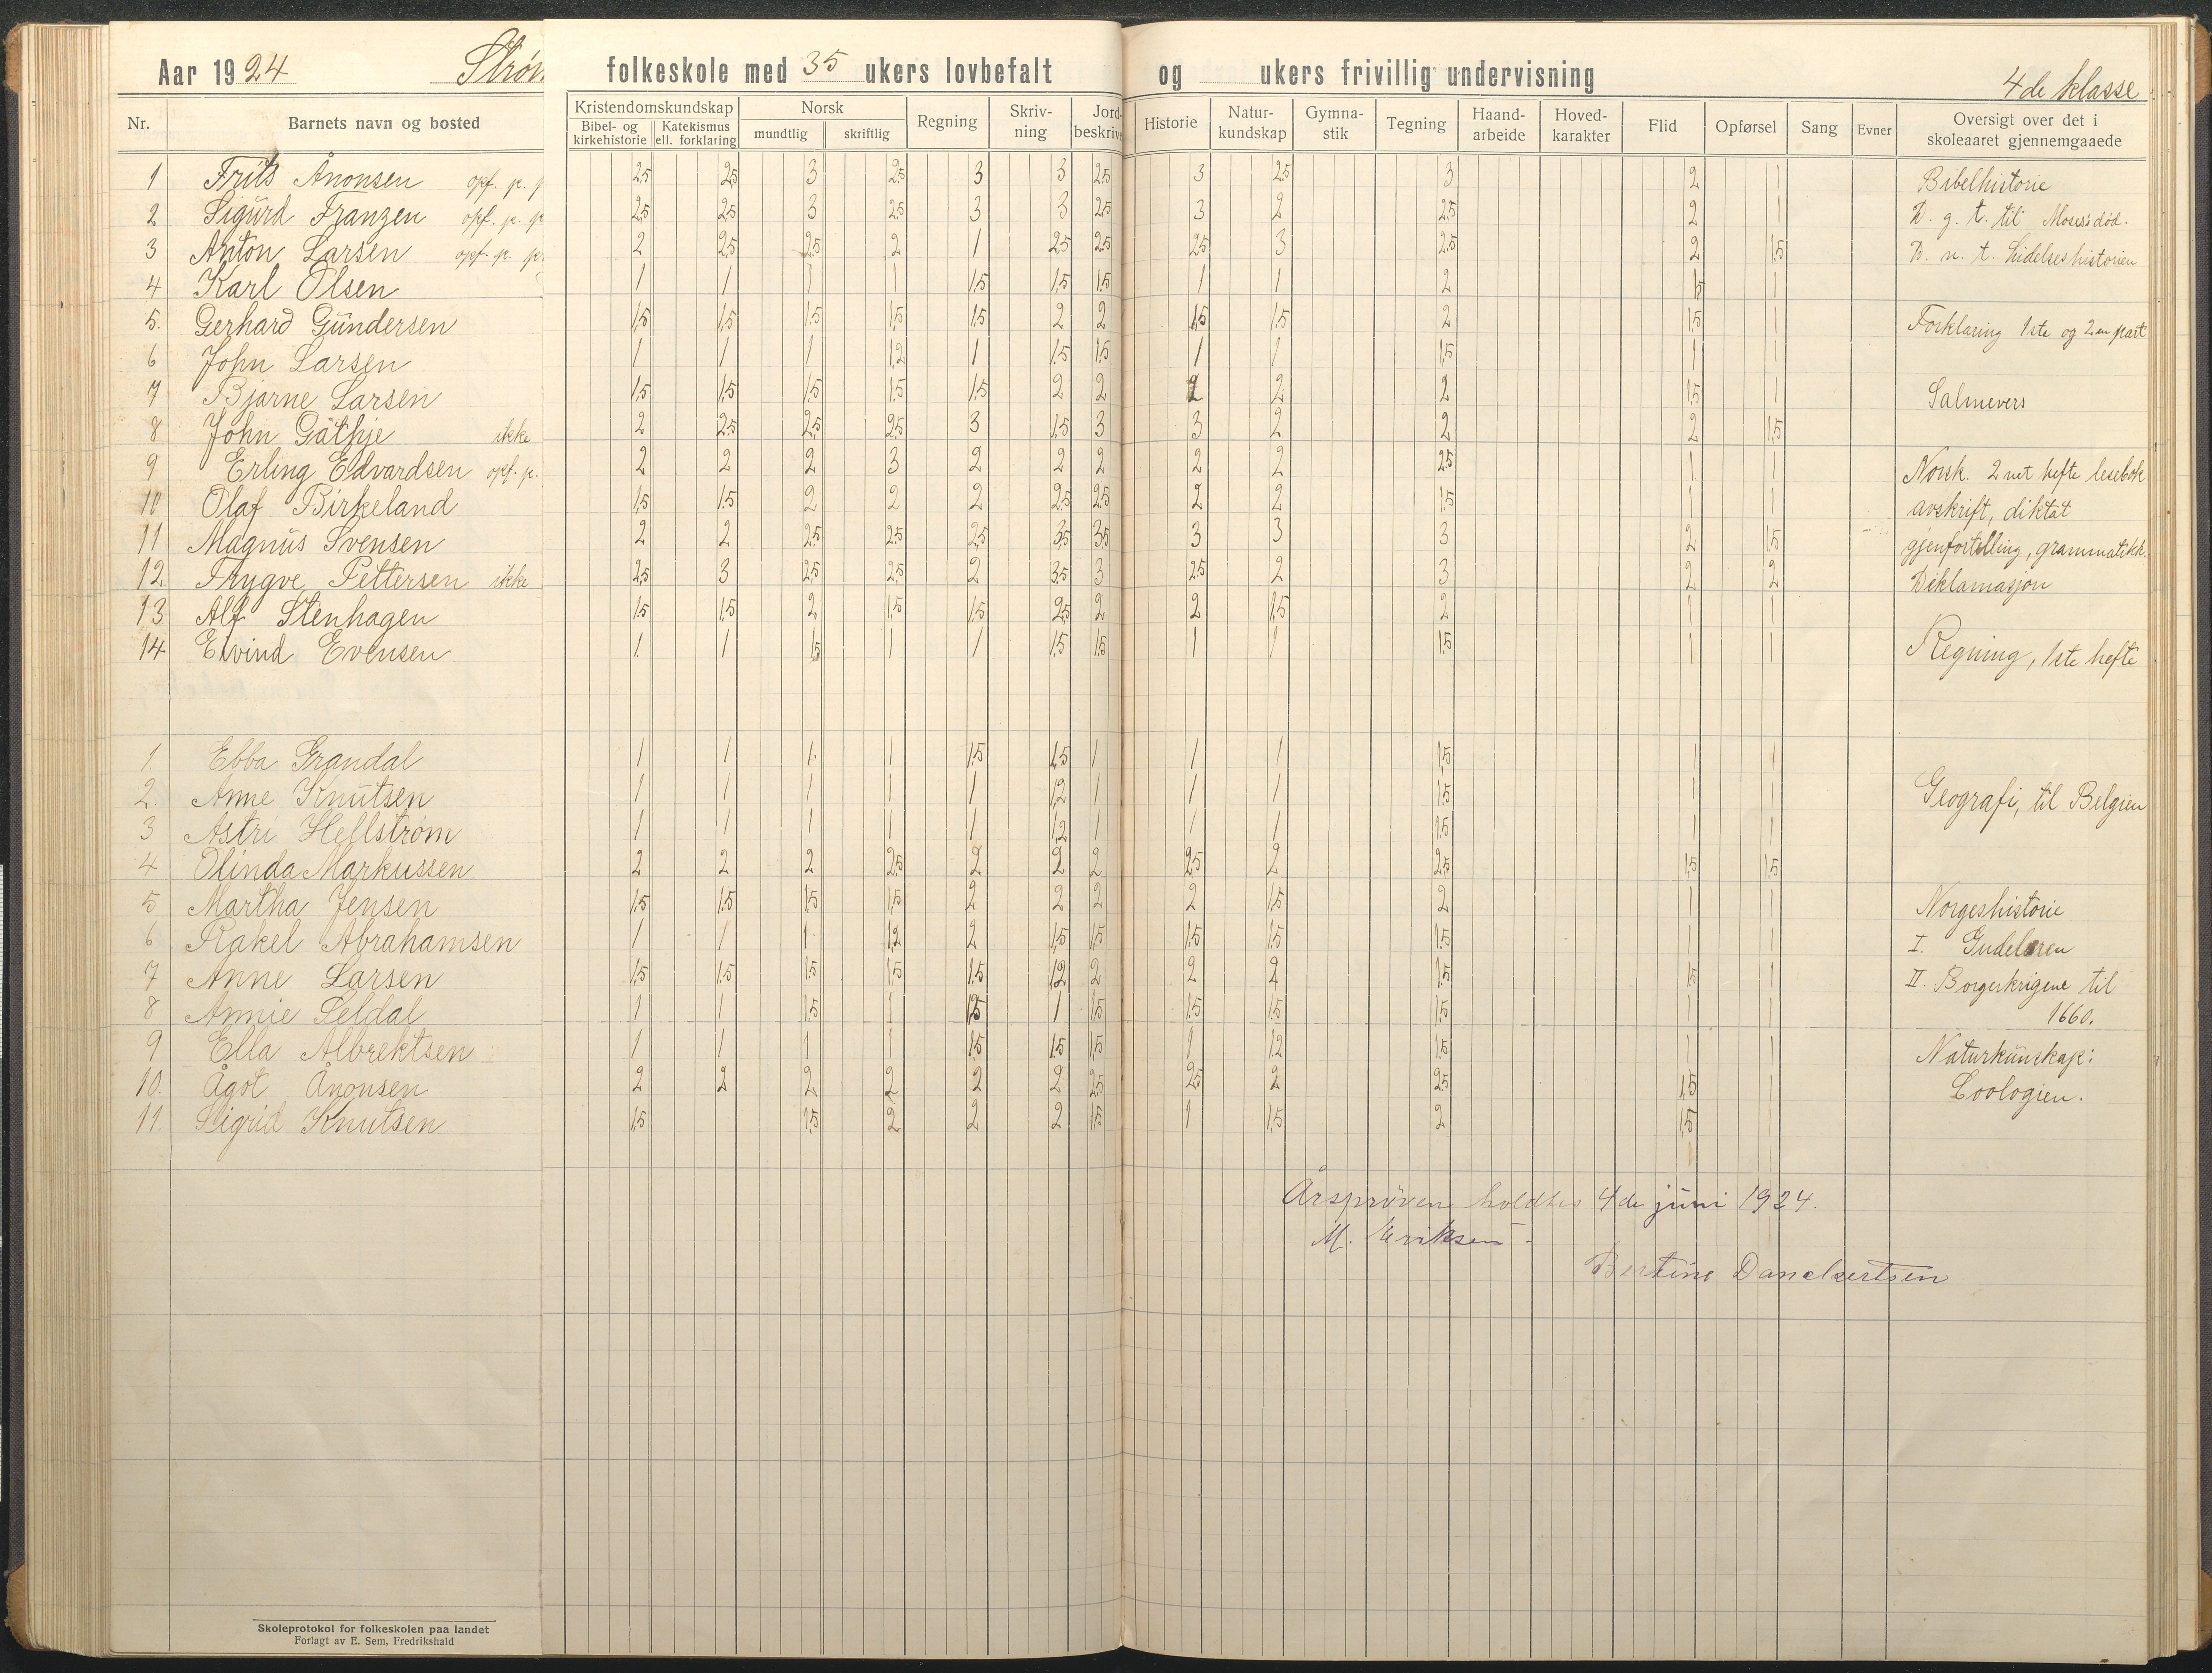 Aar 1924 Strøm folkeskole med 35 ukers lovbefalt og ukers frivillig undervisning
4de klasse
Nr. Barnets navn og bosted Kristendomskundskap Bibel- og kirkehistorie Katekismus ell. forklaring Norsk mundtlig skriftlig Regning Skriv-ning Jord-beskriv Historie Natur-kundskap Gymna-stik Tegning Haand-arbeide Hoved-karakter Flid Opførsel Sang Evner Oversigt over det i skoleaaret gjennemgaaede
1 Frits Ånonsen opf. p. p 2,5 2,5 3 2,5 3 3 2,5 3 2,5 3 2 1 Bibelhistorie
2 Sigurd Franzen opf. p. p 2,5 2,5 3 2,5 3 3 2,5 3 2 2,5 2 1 D. g. t. til Moses's død.
3 Anton Larsen opf. p. p. 2 2,5 2,5 2 1 2,5 2,5 2,5 3 2,5 2 1,5 D. n. t. Lidelseshistorien
4 Karl Olsen 1 1 1 1 1,5 1,5 1,5 1 1 2 1,5 1
5. Gerhard Gundersen 1,5 1,5 1,5 1,5 1,5 2 2 1,5 1,5 2 1,5 1 Forklaring 1ste og 2en part
6 John Larsen 1 1 1 1,2 1 1,5 1,5 1 1 1,5 1 1
7 Bjarne Larsen 1,5 1,5 1,5 1,5 1,5 2 2 2 2 2 1,5 1 Salmevers
8 John Gäthje ikke 2 2,5 2,5 2,5 3 1,5 3 3 2 2 2 1,5
9 Erling Edvardsen opf. p. 2 2 2 3 2 2 2 2 2 2,5 1 1 Norsk. 2net hefte lesebok
10 Olaf Birkeland 1,5 1,5 2 2 2 2,5 2,5 2 2 1,5 1 1 avskrift, diktat
11 Magnus Svensen 2 2 2,5 2,5 2,5 3,5 3,5 3 3 3 2 1,5 gjenfortelling, grammatikk.
12. Trygve Pettersen ikke 2,5 3 2,5 2,5 2 3,5 3 2,5 2 3 2 2 Deklamasjon
13 Alf Stenhagen 1,5 1,5 2 1,5 1,5 2,5 2 2 1,5 2 1 1
14 Eivind Evensen 1 1 1,5 1 1 1,5 1,5 1 1 1,5 1 1 Regning, 1ste hefte
1. Ebba Grandal 1 1 1 1 1,5 1,5 1 1 1 1,5 1 1
2. Anne Knutsen 1 1 1 1 1 1,2 1 1 1 1,5 1 1 Geografi, til Belgien
3 Astri Hellstrøm 1 1 1 1 1 1,2 1 1 1 1,5 1 1
4 Olinda Markussen 2 2 2 2,5 2 2 2 2,5 2 2,5 1,5 1,5
5 Martha Jensen 1,5 1,5 1,5 1,5 2 2 2 2 1,5 2 1 1 Norgeshistorie
6 Rakel Abrahamsen 1 1 1 1,2 2 1,5 1,5 1,5 1,5 1,5 1 1 I. Gudeleren
7 Anne Larsen 1,5 1,5 1,5 1,5 1,5 1,2 2 2 2 1,5 1,5 1 II. Borgerkrigene til
8 Annie Seldal 1 1 1,5 1 1 1,5 1,5 1,5 1,5 1 1 1660.
9 Ella Albrektsen 1 1 1 1 1,5 1,5 1,5 1 1,2 1,5 1 1 Naturkunskap:
10. Ågot Ånonsen 2 2 2 2 2 2 2,5 2,5 2 2,5 1,5 1 Zoologien.
11. Sigrid Knutsen 1,5 1,5 2 2 2 1,5 1 1,5 2 1,5 1
Årsprøven holdtes 4de juni 1924.
M. Eriksen
Bertine Danelsertsen
Skoleprotokol for folkeskolen paa landet
Forlagt av E. Sem, Fredrikshald